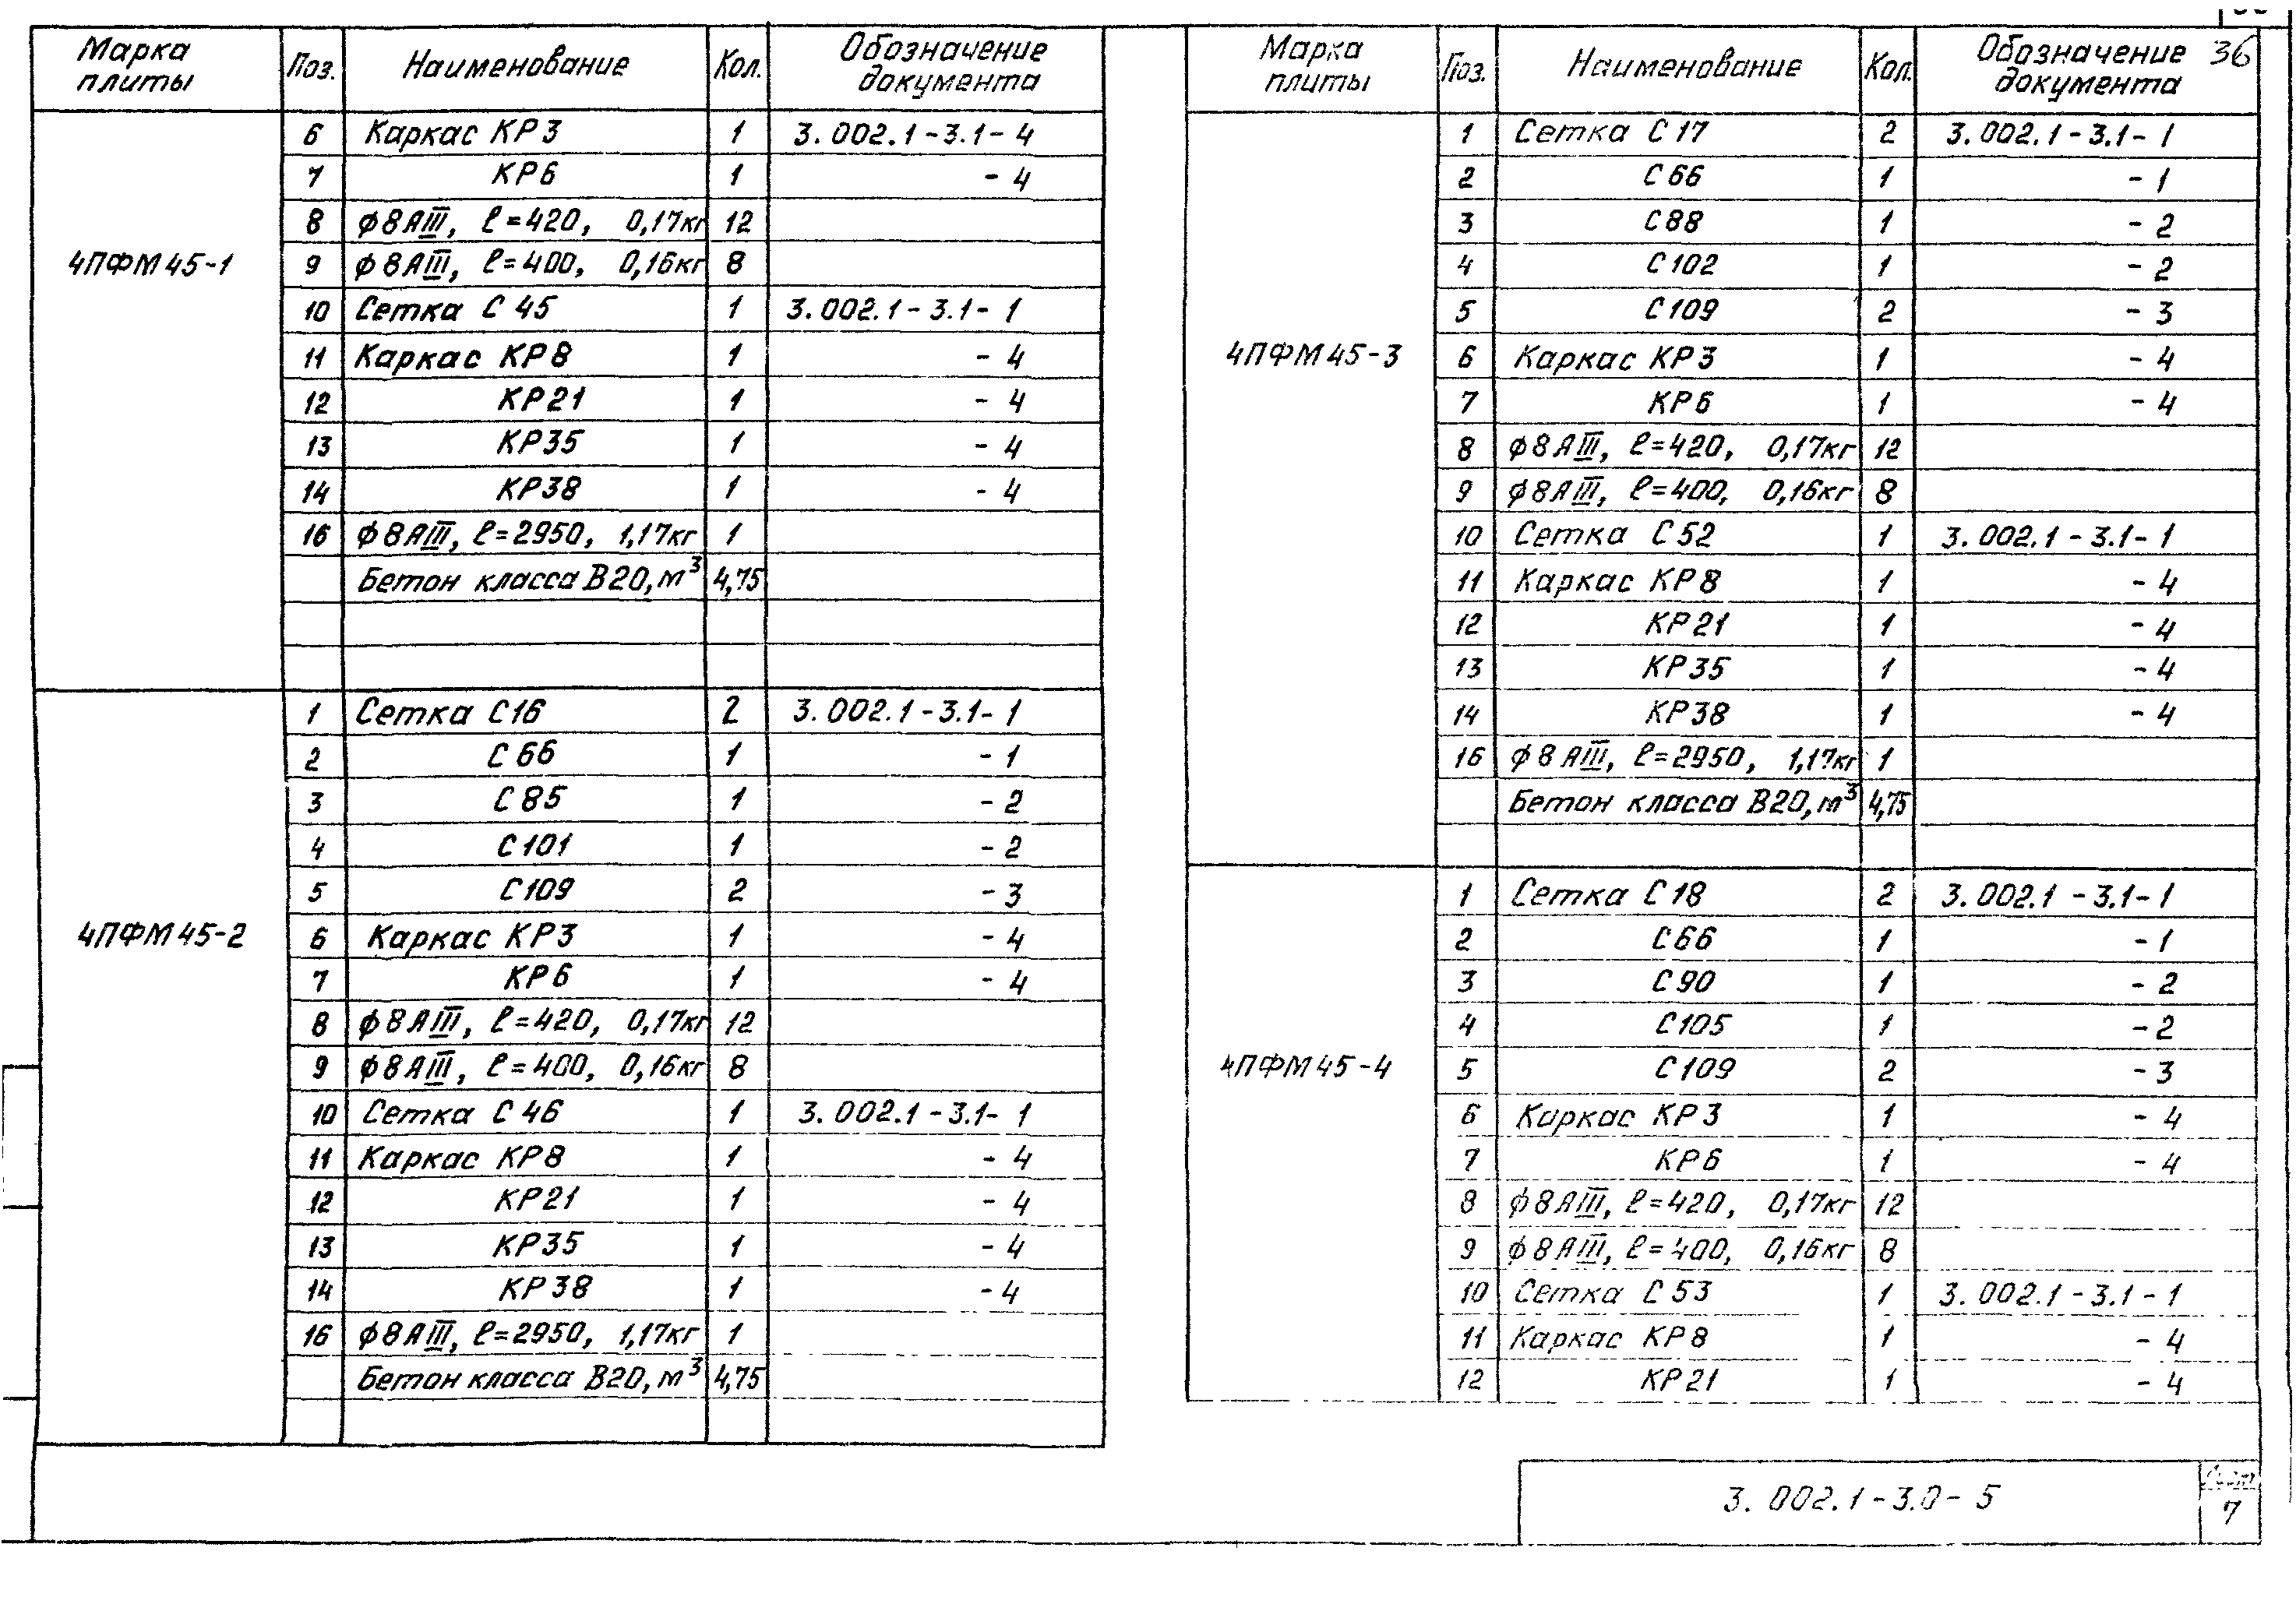 36
Марка плиты | Поз. | Наименование | Кол. | Обозначение документа
4ПФМ45-1
6 | Каркас КР3 | 1 | 3.002.1-3.1-4
7 | КР6 | 1 | -4
8 | ϕ8АIII, ℓ=420, 0,17кг | 12
9 | ϕ8АIII, ℓ=400, 0,16кг | 8
10 | Сетка С45 | 1 | 3.002.1-3.1-1
11 | Каркас КР8 | 1 | -4
12 | КР21 | 1 | -4
13 | КР35 | 1 | -4
14 | КР38 | 1 | -4
16 | ϕ8АIII, ℓ=2950, 1,17кг | 1
Бетон класса В20, м³ | 4,75
4ПФМ45-2
1 | Сетка С16 | 2 | 3.002.1-3.1-1
2 | С66 | 1 | -1
3 | С85 | 1 | -2
4 | С101 | 1 | -2
5 | С109 | 2 | -3
6 | Каркас КР3 | 1 | -4
7 | КР6 | 1 | -4
8 | ϕ8АIII, ℓ=420, 0,17кг | 12
9 | ϕ8АIII, ℓ=400, 0,16кг | 8
10 | Сетка С46 | 1 | 3.002.1-3.1-1
11 | Каркас КР8 | 1 | -4
12 | КР21 | 1 | -4
13 | КР35 | 1 | -4
14 | КР38 | 1 | -4
16 | ϕ8АIII, ℓ=2950, 1,17кг | 1
Бетон класса В20, м³ | 4,75
Марка плиты | Поз. | Наименование | Кол. | Обозначение документа
4ПФМ45-3
1 | Сетка С17 | 2 | 3.002.1-3.1-1
2 | С66 | 1 | -1
3 | С88 | 1 | -2
4 | С102 | 1 | -2
5 | С109 | 2 | -3
6 | Каркас КР3 | 1 | -4
7 | КР6 | 1 | -4
8 | ϕ8АIII, ℓ=420, 0,17кг | 12
9 | ϕ8АIII, ℓ=400, 0,16кг | 8
10 | Сетка С52 | 1 | 3.002.1-3.1-1
11 | Каркас КР8 | 1 | -4
12 | КР21 | 1 | -4
13 | КР35 | 1 | -4
14 | КР38 | 1 | -4
16 | ϕ8АIII, ℓ=2950, 1,17кг | 1
Бетон класса В20, м³ | 4,75
4ПФМ45-4
1 | Сетка С18 | 2 | 3.002.1-3.1-1
2 | С66 | 1 | -1
3 | С90 | 1 | -2
4 | С105 | 1 | -2
5 | С109 | 2 | -3
6 | Каркас КР3 | 1 | -4
7 | КР6 | 1 | -4
8 | ϕ8АIII, ℓ=420, 0,17кг | 12
9 | ϕ8АIII, ℓ=400, 0,16кг | 8
10 | Сетка С53 | 1 | 3.002.1-3.1-1
11 | Каркас КР8 | 1 | -4
12 | КР21 | 1 | -4
3.002.1-3.0-5
Лист
7